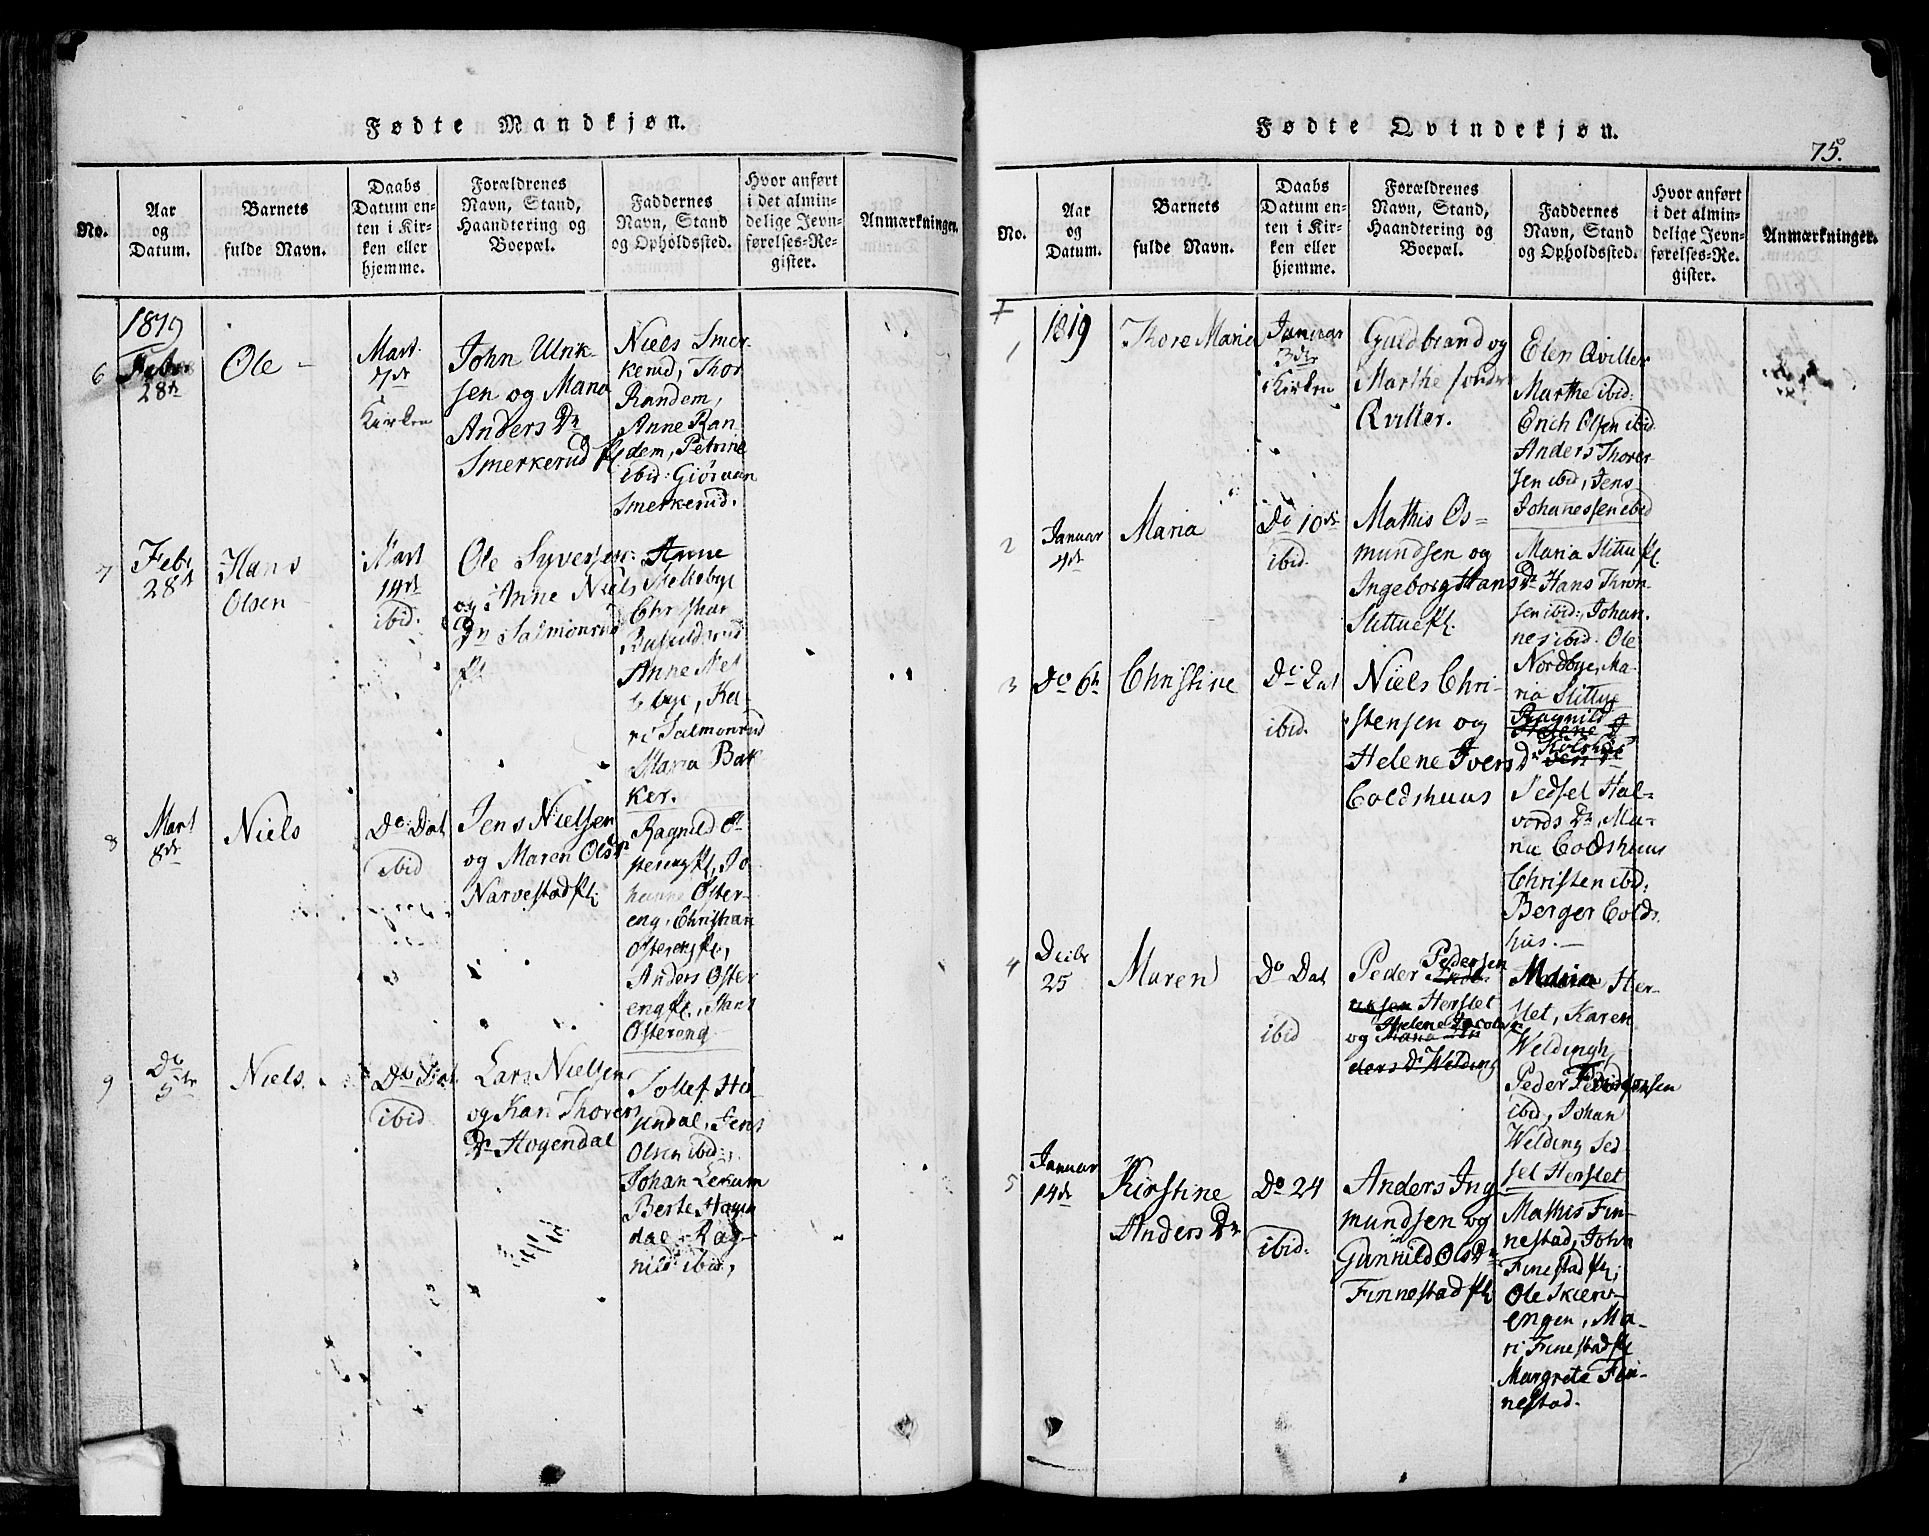 Fødte Mandkjøn.
No.
Aar
og
Datum.
Barnets
fulde Navn.
Daabs
Datum en-
ten i Kir-
ken eller
hjemme.
Forældrenes
Navn, Stand,
Haandtering og
Boepæl.
Faddernes
Navn, Stand
og Opholdssted.
Hvor anført
i det almin-
delige Jevn-
førelses-Re-
gister.
Anmærkninger.
1819
6
Febr
28de
Ole
Mart.
7de
Kirken
John Ulrik-
sen og Maria
Anders Dr
Smerkerud Pl
Niels Smer-
kerud, Thor
Randem,
Anne Ran
dem, Petrine
ibid: Giöruan
Smerkerud.
7
Febr
28de
Hans
Olsen
Mart
14de
ibid.
Ole Syversen
og Anne Niels
Dr Salmonrud
Pl
Anne
Melsbye
Christian
rud
Anne Mel
bye, Ka-
ri Salmonrud
Maria Bak
ker.
8
Mart
8de
Niels
Do Dat
ibid
Jens Nielsen
og Maren Olsdr
Narvestad Pl.
Ragnild Ö
stereng Pl, Jo
hanne Öster-
eng, Christian
Östereng Pl,
Anders Öster
eng Pl.,
Östereng
9
Do
5te
Niels.
Do Dat
ibid
Lars Nielsen
og Kari Thorers
Dr Hogendal
Tollef Ho
gendal, Jens
Olsen ibid:,
Johan Lekum
Berte Hogen
dal, Rag-
nild ibid,
Fødte Qvindekjøn.
75.
No.
Aar
og
Datum.
Barnets
fulde Navn.
Daabs
Datum en-
ten i Kir-
ken eller
hjemme.
Forældrenes
Navn, Stand,
Haandtering og
Boepæl.
Faddernes
Navn, Stand
og Opholdssted.
Hvor anført
i det almin-
delige Jevn-
førelses-Re-
gister.
Anmærkninger.
1
1819
Thore Maria
Januar
3de
i Kirken
Guldbrand og
Marthe sondre
Qviller.
Elen Qviller
Marthe ibid:
Erich Olsen ibid
Anders Thorer-
sen ibid, Jens
Johanessen ibid
2
Januar
4de
Maria
Do 10de
ibid.
Mathis Os=
mundsen og
Ingeborg Hans Dr
Slittue Pl.
Maria Slittu Pl.
Hans Thron-
sen ibid:, Johan-
nes ibid. Ole
Nordbye, Ma-
ria Slittue
3
Do 6te
Christine
Do Dat
ibid.
Niels Chri-
stensen og
Helene Ivers Dr
Coldshuus
Ragnild
Helene
Sedsel Hal-
vords Dr, Ma-
ria Coldshuus
Christen ibid:
Berger Colds
hus.
4
Decbr
25
Maren
Do Dat
ibid
Peder Pedersen
Herslet
og Helene Jacobs
Maria
ders Dr Welding
Maria Her-
slet, Karen
Weldingh
Peder
ibid, Johan
Welding Sed-
sel Herslet
5
Januar
14de
Kirstine
Anders Dr
Do 24
ibid.
Anders Ing
mundsen og
Gunnild Ols Dr
Finnestad Pl
Mathis Fin-
nestad, John
Finestad Pl,
Ole Skierv-
engen, Ma-
ri Finestad Pl
Margrete Fin-
nestad.